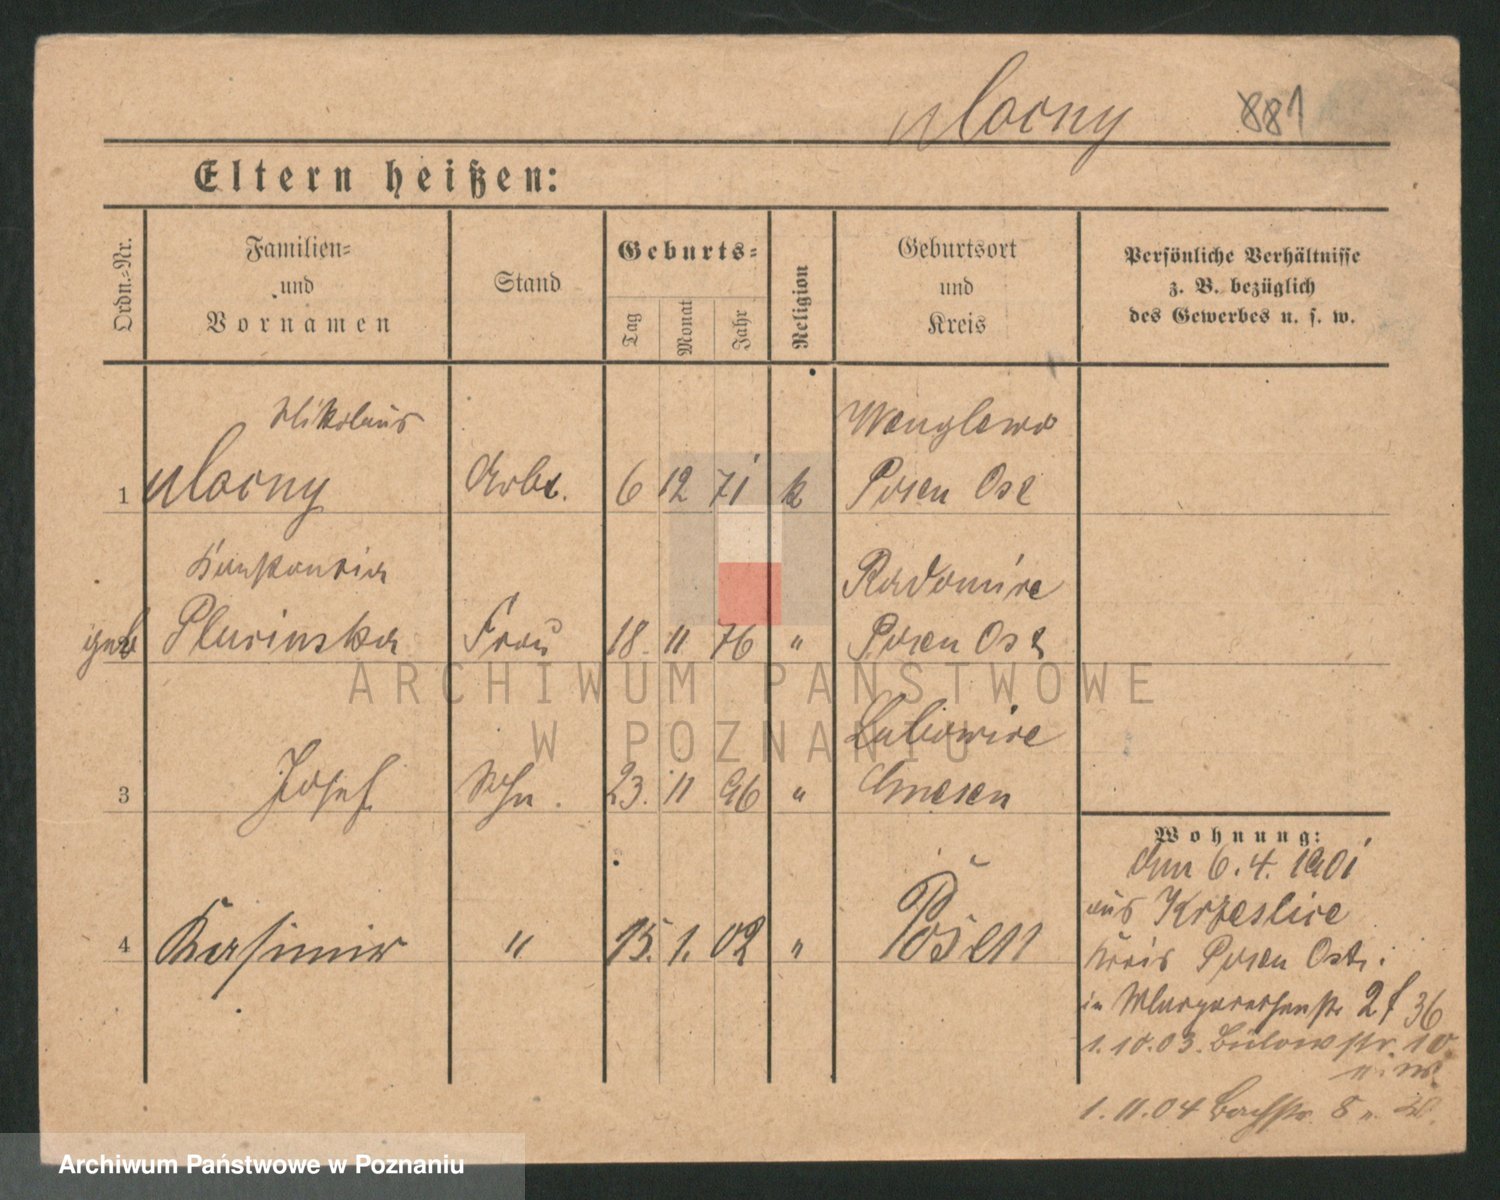 Mocny 881
Eltern heißen:
Ordn.-Nr.
Familien-
und
Vornamen
Stand
Geburts-
Tag
Monat
Jahr
Religion
Geburtsort
und
Kreis
Persönliche Verhältnisse
z. B. bezüglich
des Gewerbes u. s. w.
Nikolaus
Wenglewo
1 Mocny Arbt. 6 12 71 k Posen Ost
Konstantia
Radomice
geb Plucinska Frau 18. 11 76 " Posen Ost
Lubowice
3 Josef Sohn. 23. 11 96 " Gnesen
4 Kasimir " 15. 1. 02 " Posen
Wohnung:
Am 6. 4. 1901
aus Krzeslice
Kreis Posen Ost.
in Margarethenstr 2 f 36
1. 10. 03. Bülowstr. 10
1. 11. 04 Bachstr. 8
ARCHIWUM PAŃSTWOWE
W POZNANIU
Archiwum Państwowe w Poznaniu